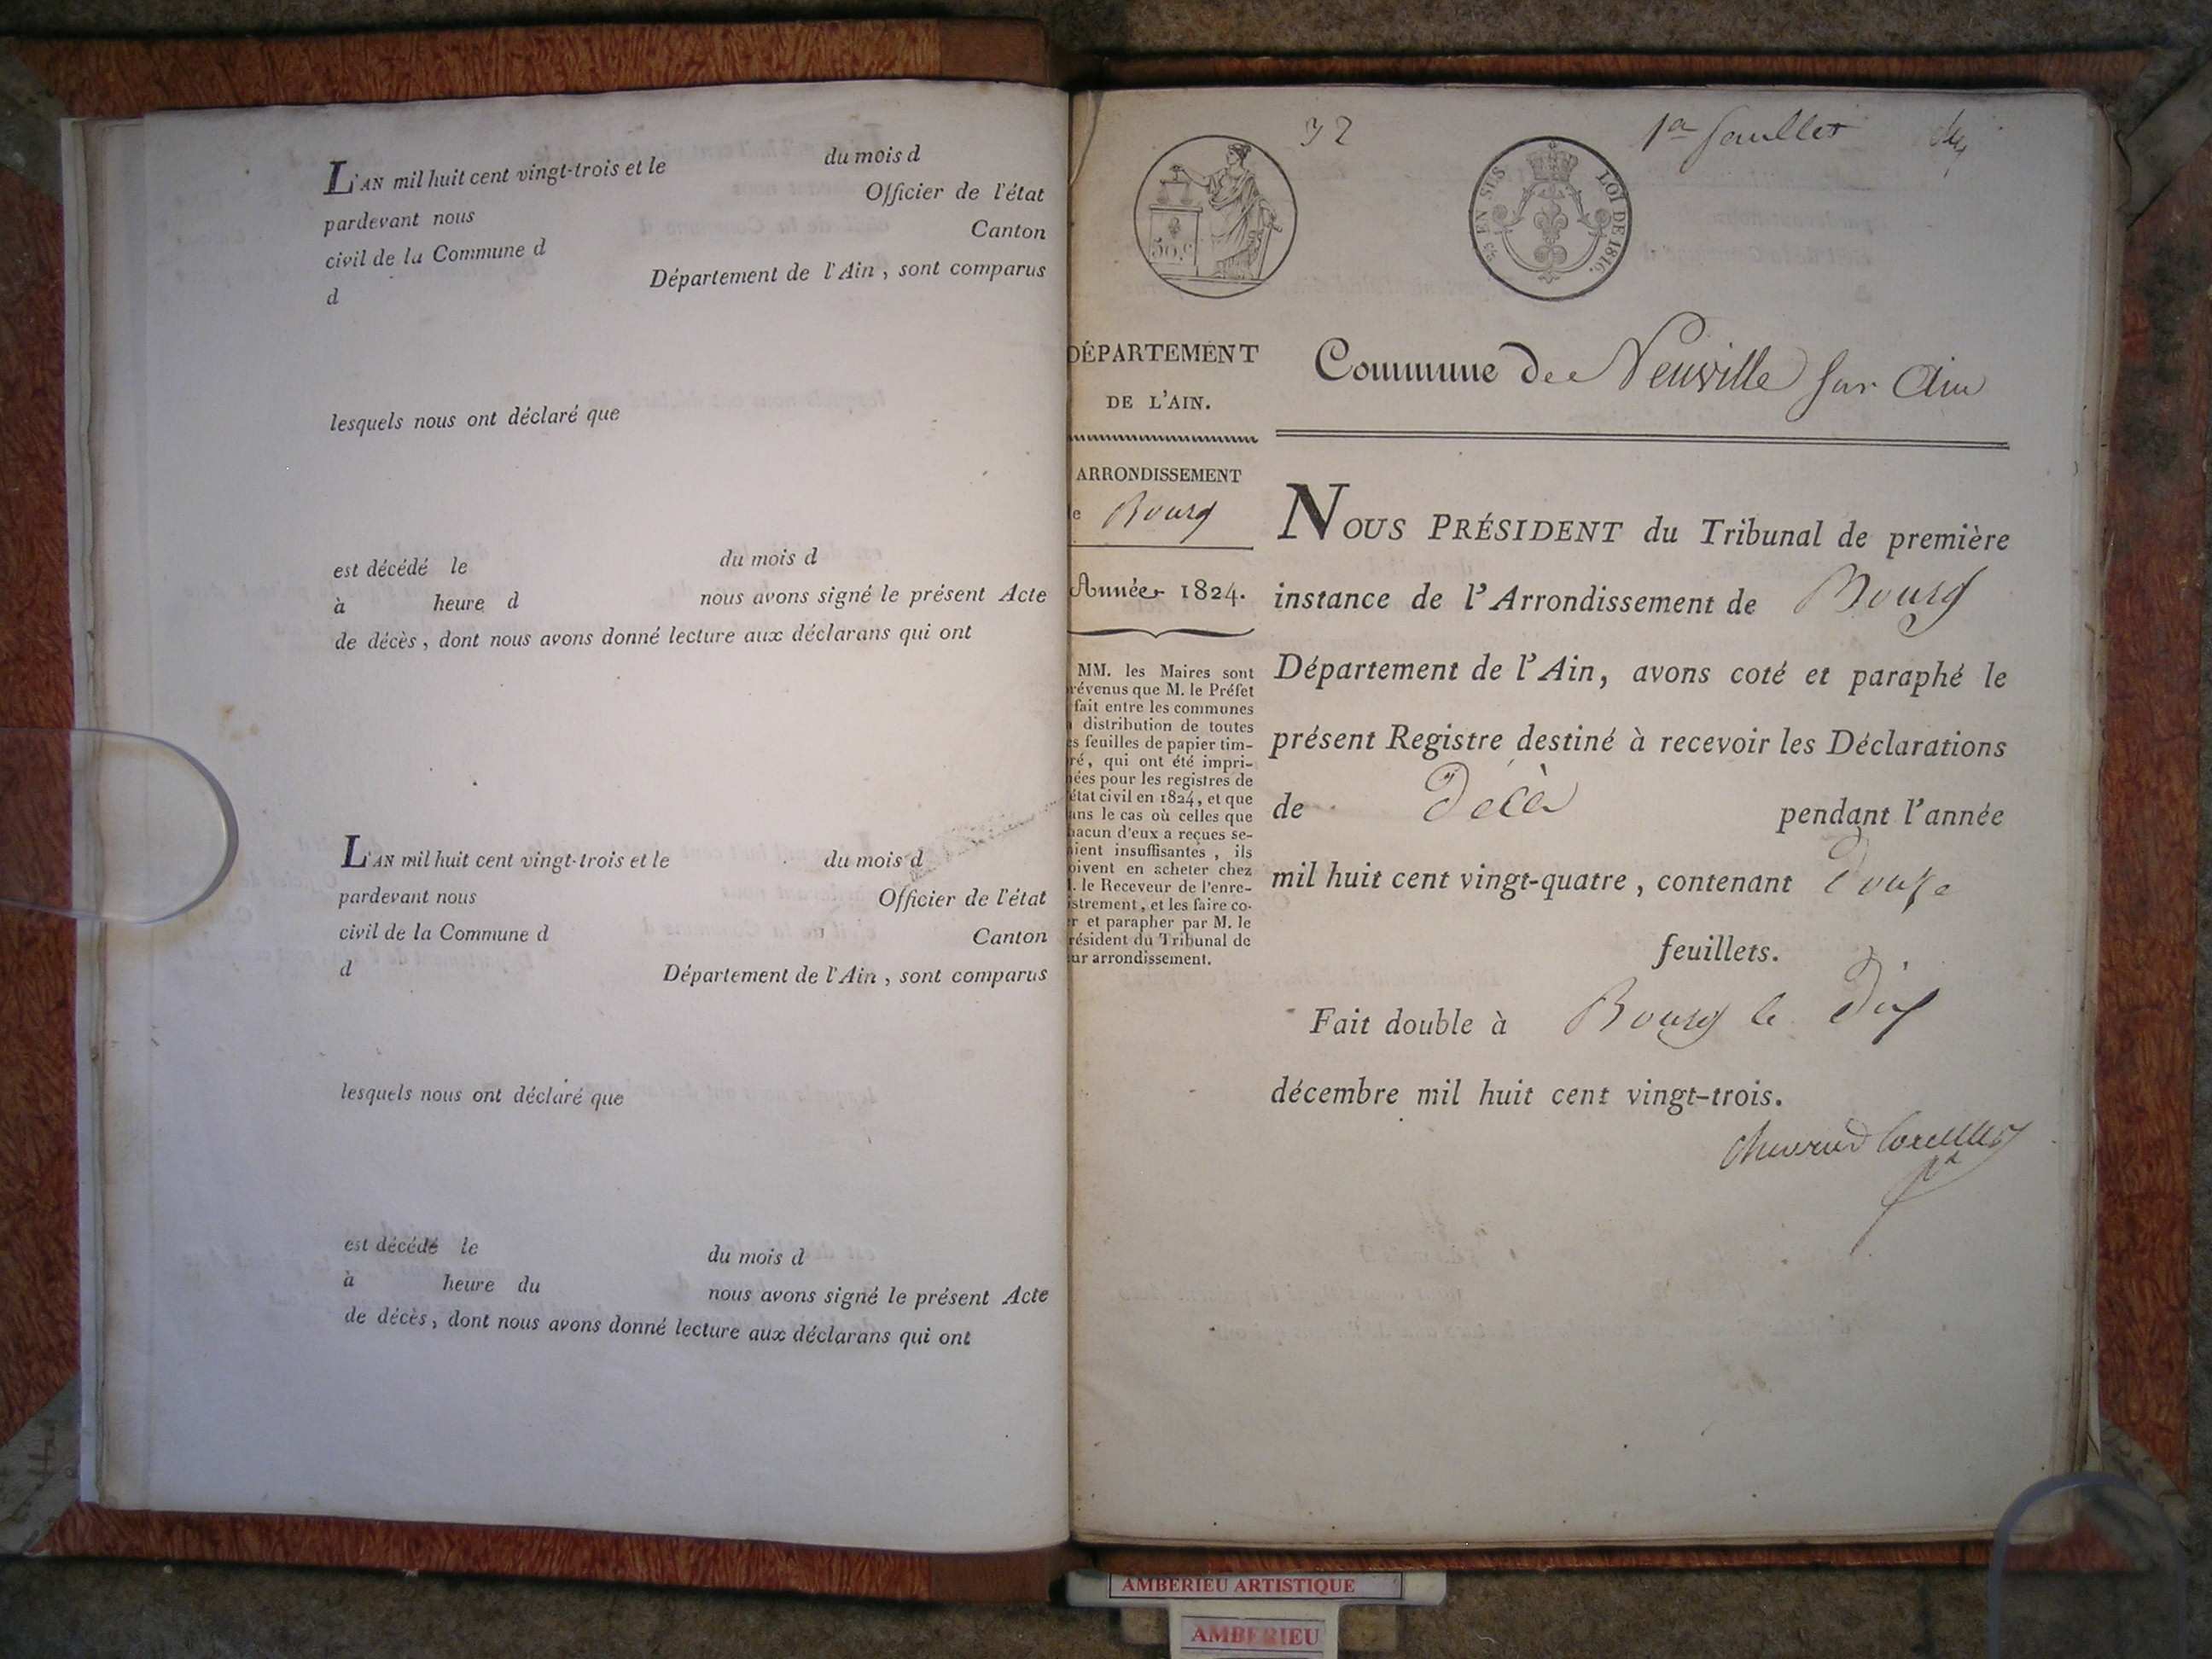 L'AN mil huit cent vingt-trois et le du mois d
pardevant nous Officier de l'état
civil de la Commune d Canton
d Département de l'Ain, sont comparus
lesquels nous ont déclaré que
est décédé le du mois d
à heure d nous avons signé le présent Acte
de décès, dont nous avons donné lecture aux déclarans qui ont
L'AN mil huit cent vingt-trois et le du mois d
pardevant nous Officier de l'état
civil de la Commune d Canton
d Département de l'Ain, sont comparus
lesquels nous ont déclaré que
est décédé le du mois d
à heure du nous avons signé le présent Acte
de décès, dont nous avons donné lecture aux déclarans qui ont
32
50.c
EN SUS
LOI DE 1816.
DÉPARTEMENT
DE L'AIN.
ARRONDISSEMENT
e Bourg
Année 1824.
MM. les Maires sont
révenus que M. le Préfet
fait entre les communes
distribution de toutes
es feuilles de papier tim-
ré, qui ont été impri-
ées pour les registres de
état civil en 1824, et que
ans le cas où celles que
hacun d'eux a reçues se-
aient insuffisantes, ils
oivent en acheter chez
. le Receveur de l'enre-
istrement, et les faire co-
er et parapher par M. le
résident du Tribunal de
ur arrondissement.
Commune de Neuville sur Ain
NOUS PRÉSIDENT du Tribunal de première
instance de l'Arrondissement de Bourg
Département de l'Ain, avons coté et paraphé le
présent Registre destiné à recevoir les Déclarations
de Décès pendant l'année
mil huit cent vingt-quatre, contenant douze
feuillets.
Fait double à Bourg le dix
décembre mil huit cent vingt-trois.
AMBERIEU ARTISTIQUE
AMBERIEU